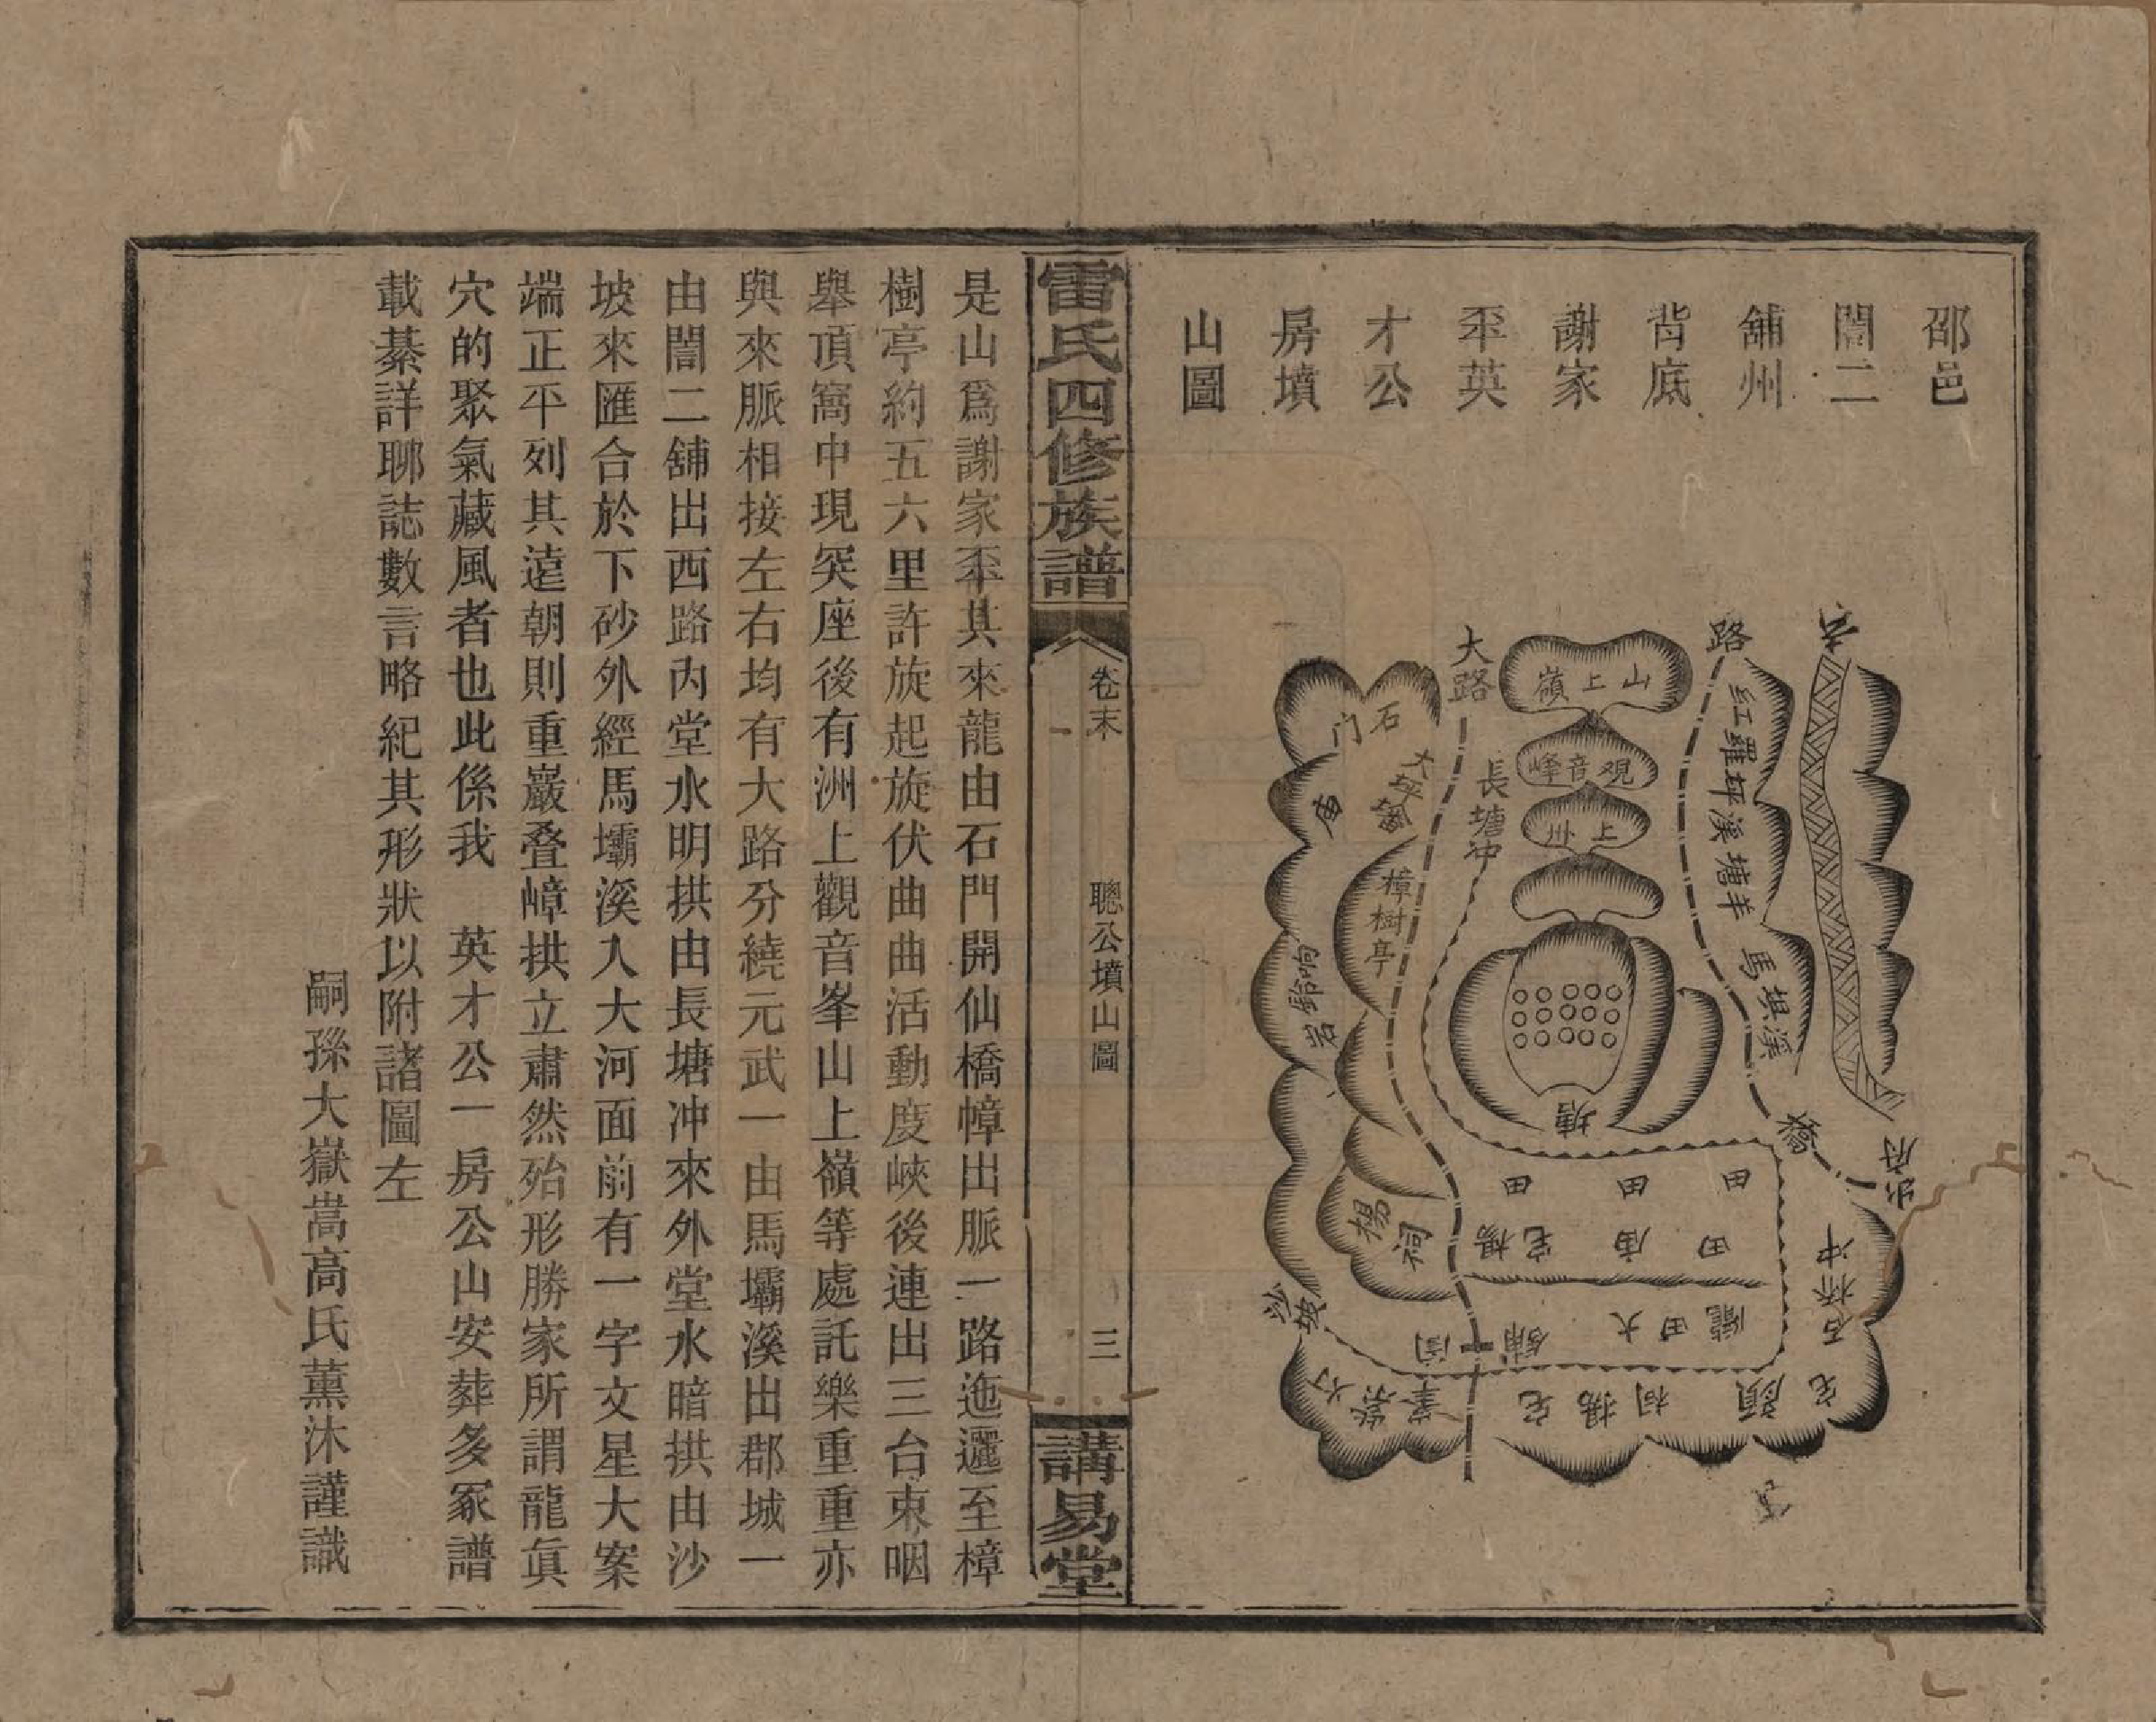 邵邑
誾二
舖州
背底
謝家
坖英
才公
房墳
山圖
路
紅羅坪溪塘羊
馬堌溪
橋
大路
山上嶺
观音峰
上卅
長塘冲
石门
大坪
樟樹亭
响鈴岩
塘
田 田 田
田 庙 宅楊
楊祠
隴田大
舖
冲林石
顔
祠楊宅
府
雷氏四修族譜
卷末
聰公墳山圖
三
講易堂
是山爲謝家坖其來龍由石門開仙橋幛出脈一路迤邐至樟
樹亭約五六里許旋起旋伏曲曲活動度峽後連出三台束咽
舉頂窩中現突座後有洲上觀音峯山上嶺等處託樂重重亦
與來脈相接左右均有大路分繞元武一由馬壩溪出郡城一
由誾二舖出西路內堂水明拱由長塘冲來外堂水暗拱由沙
坡來匯合於下砂外經馬壩溪入大河面前有一字文星大案
端正平列其遠朝則重巖叠嶂拱立肅然殆形勝家所謂龍眞
穴的聚氣藏風者也此係我　英才公一房公山安葬多冢譜
載綦詳聊誌數言略紀其形狀以附諸圖左
嗣孫大嶽嵩高氏薰沐謹識